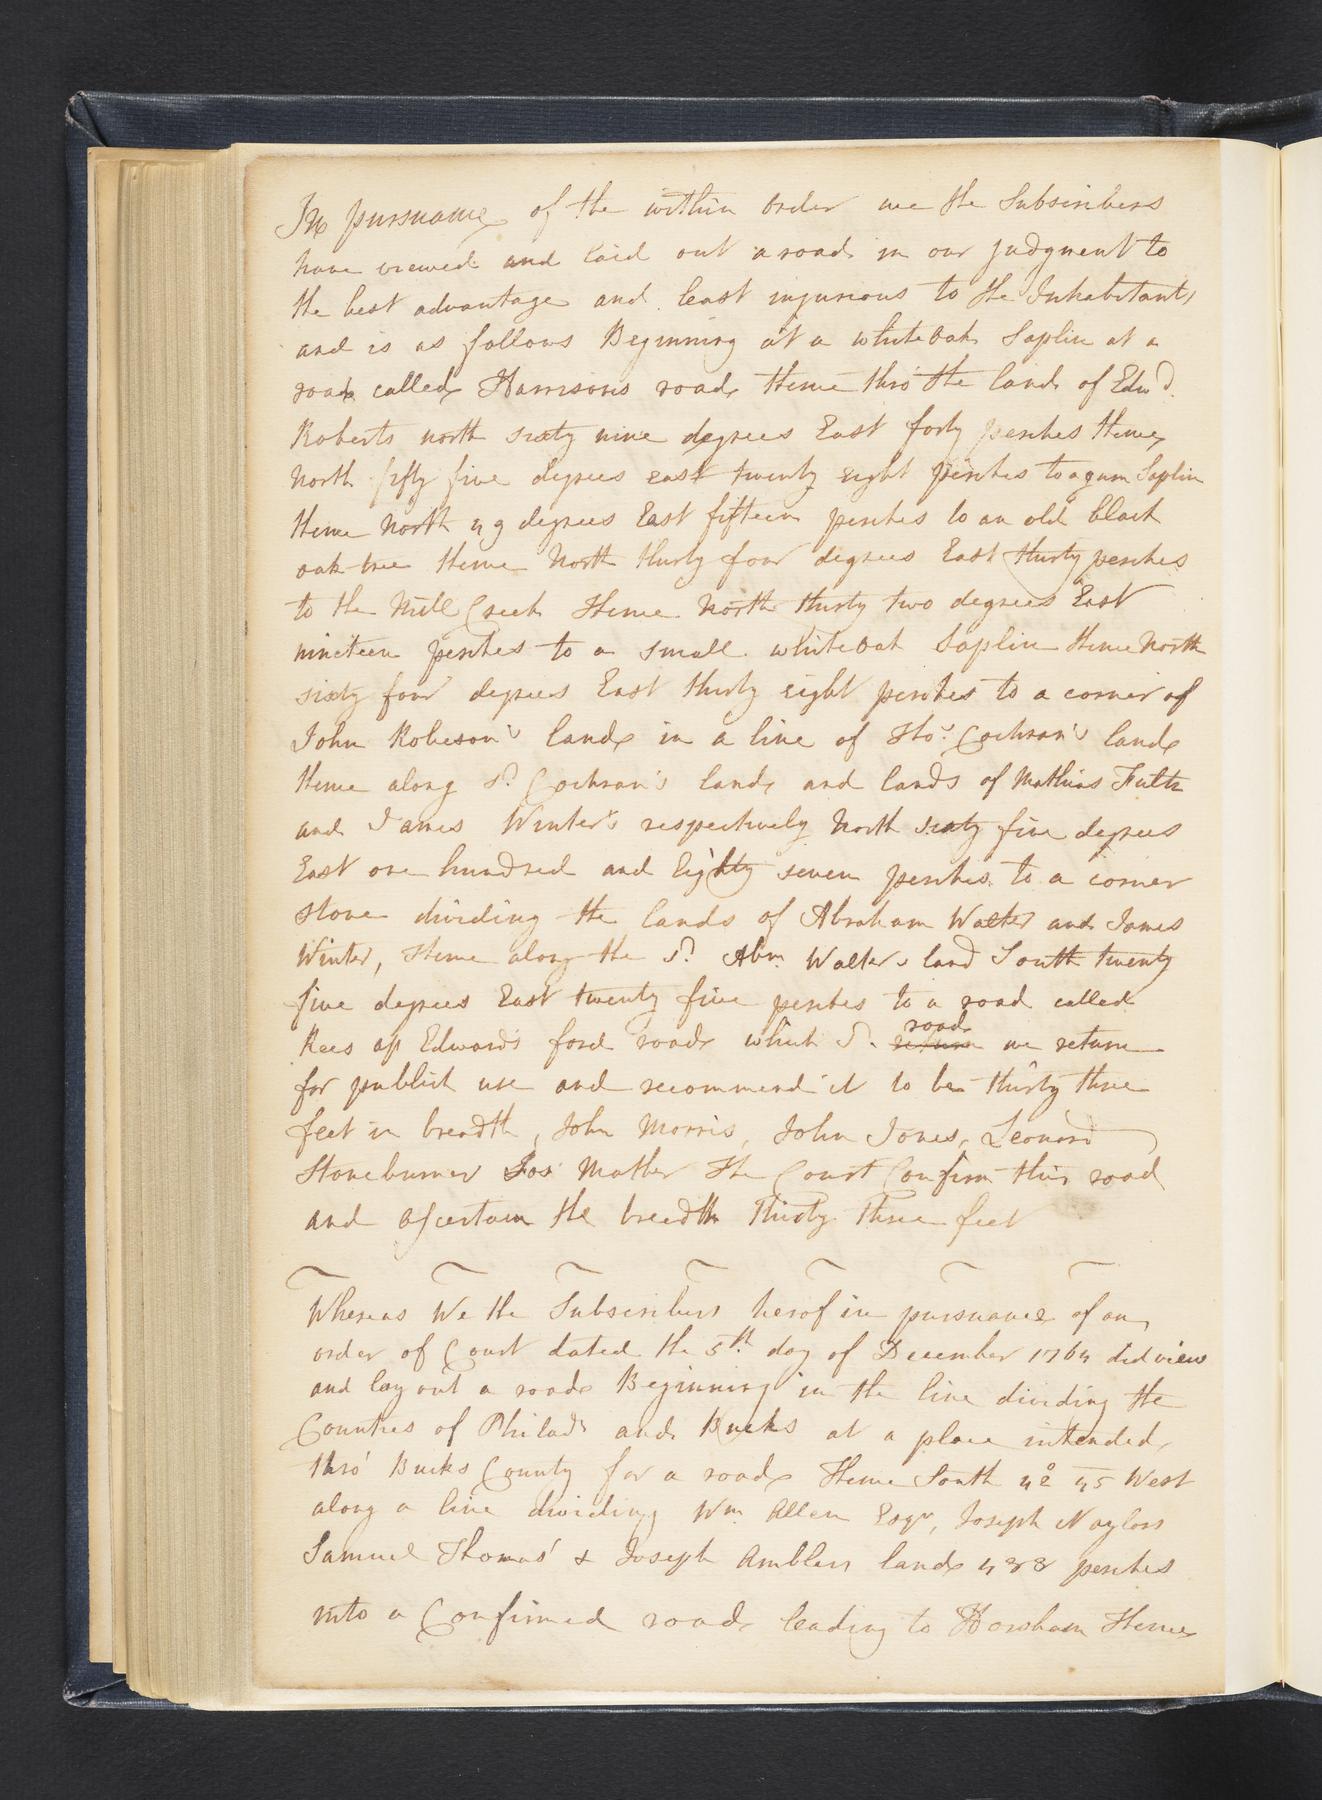 In pursuance of the within Order we the Subscribers
have viewed and laid out a road in our judgment to
the best advantage and least injurious to the Inhabitants,
and is as follows Beginning at a white oak Saplin at a
road called Harrisons road thence thro' the land of Edwd.
Roberts north sixty nine degrees East forty perches thence
North fifty five degrees east twenty eight perches to a gum Saplin
thence North 49 degrees East fifteen perches to an old black
oak tree thence North thirty four degrees East thirty perches
to the Mill Creek Thence North thirty two degrees East
nineteen perches to a small white oak Saplin thence North
sixty four degrees East thirty eight perches to a corner of
John Robeson's land in a line of Tho.s Cochran's land
thence along sd. Cochran's land and lands of Mathias Fultz
and James Winter's respectively North sixty five degrees
East one hundred and Eighty seven perches to a corner
stone dividing the lands of Abraham Walter and James
Winter, thence along the sd. Abm. Walters land South twenty
five degrees East twenty five perches to a road called
Rees ap Edwards ford road which sd. return road we return
for publick use and recommend it to be thirty three
feet in breadth, John Morris, John Jones, Leonard
Stoneburner Jos Mather The Court Confirm this road
and ascertain the breadth Thirty Three feet
Whereas We the Subscribers herof in pursuance of an
order of Court dated the 5th. day of December 1764 did view
and lay out a road Beginning in the line dividing the
Counties of Philada and Bucks at a place intended
thro' Bucks County for a road Thence South 42° 45 West
along a line dividing Wm. Allen Esqr, Joseph Naylors
Samuel Thomas' & Joseph Amblers land 488 perches
into a Confirmed road leading to Horsham Thence